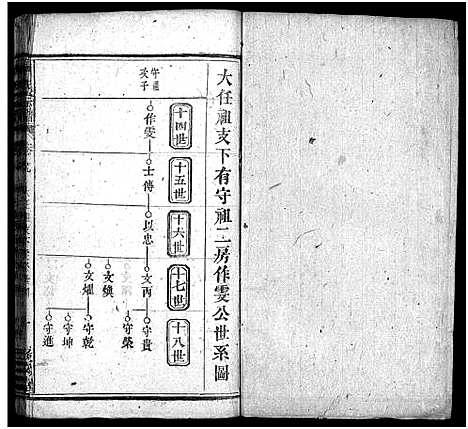 大任祖支下有守祖二房作雯公世系圖
十四世
十五世
十六世
十七世
十八世
守祖
次子
作雯
士傳
以忠
文丙
守貴
守榮
文煥
文燿
守乾
守坤
守進